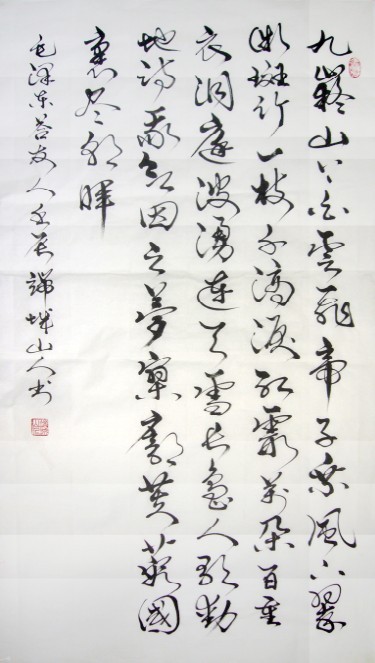 九嶷山上白雲飛帝子乘風下翠
微斑竹一枝千滴淚紅霞萬朵百重
衣洞庭波湧連天雪長島人歌動
地詩我欲因之夢寥廓芙蓉國
裏盡朝暉
毛澤東答友人 城山人书